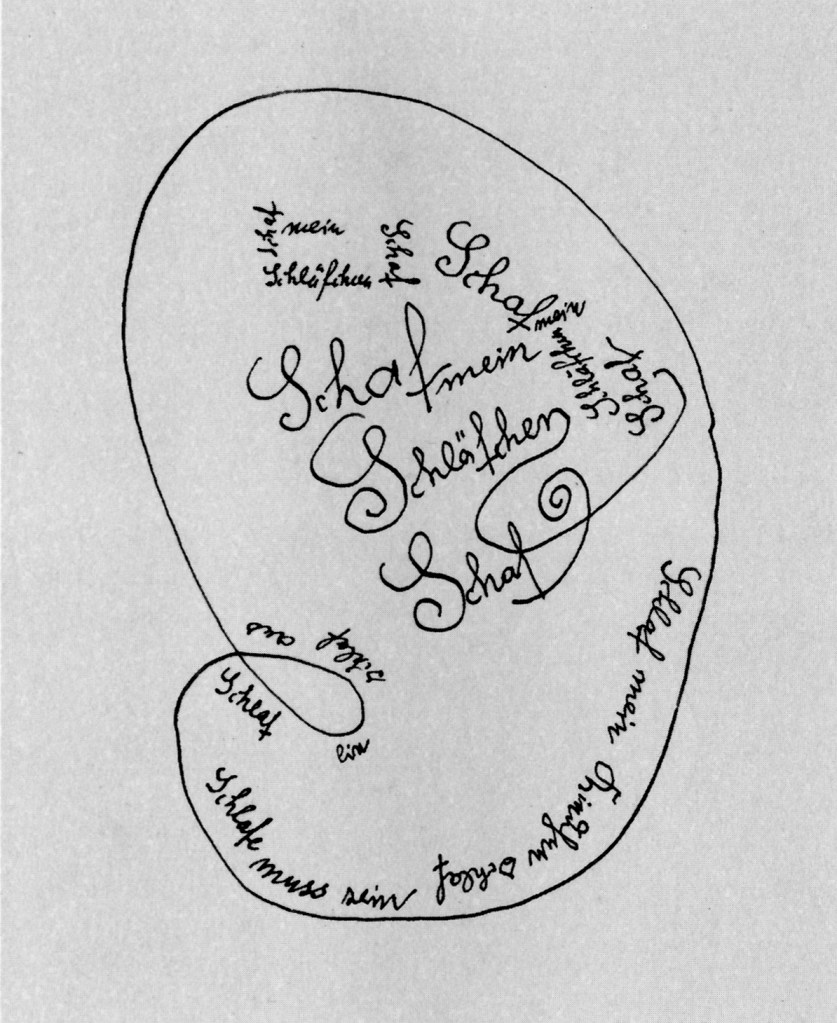 Schaf mein
Schläfchen Schaf
Schaf mein
Schläfchen
Schaf
Schaf mein
Schläfchen
Schaf
Schlaf mein
schlaf
Schlafe muss sein
Schlaf ein
schlaf aus